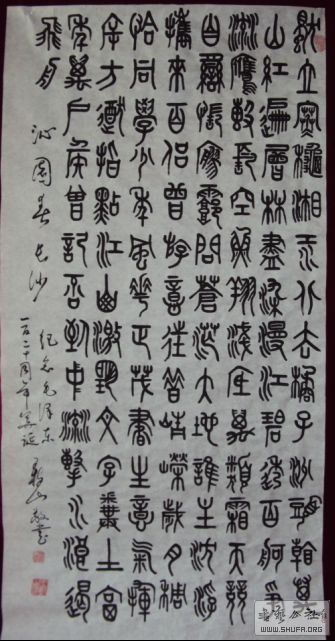 獨立寒秋湘江北去橘子洲頭看萬
山紅遍層林盡染漫江碧透百舸爭
流鷹擊長空魚翔淺底萬類霜天競
自由悵寥廓問蒼茫大地誰主沉浮
攜來百侶曾游憶往昔崢嶸歲月稠
恰同學少年風華正茂書生意氣揮
斥方遒指點江山激揚文字糞土當
年萬戶侯曾記否到中流擊水浪遏
飛舟 沁園春長沙
纪念毛泽东
一百二十周年誕 山敬書
WWW.SHUFA.ORG